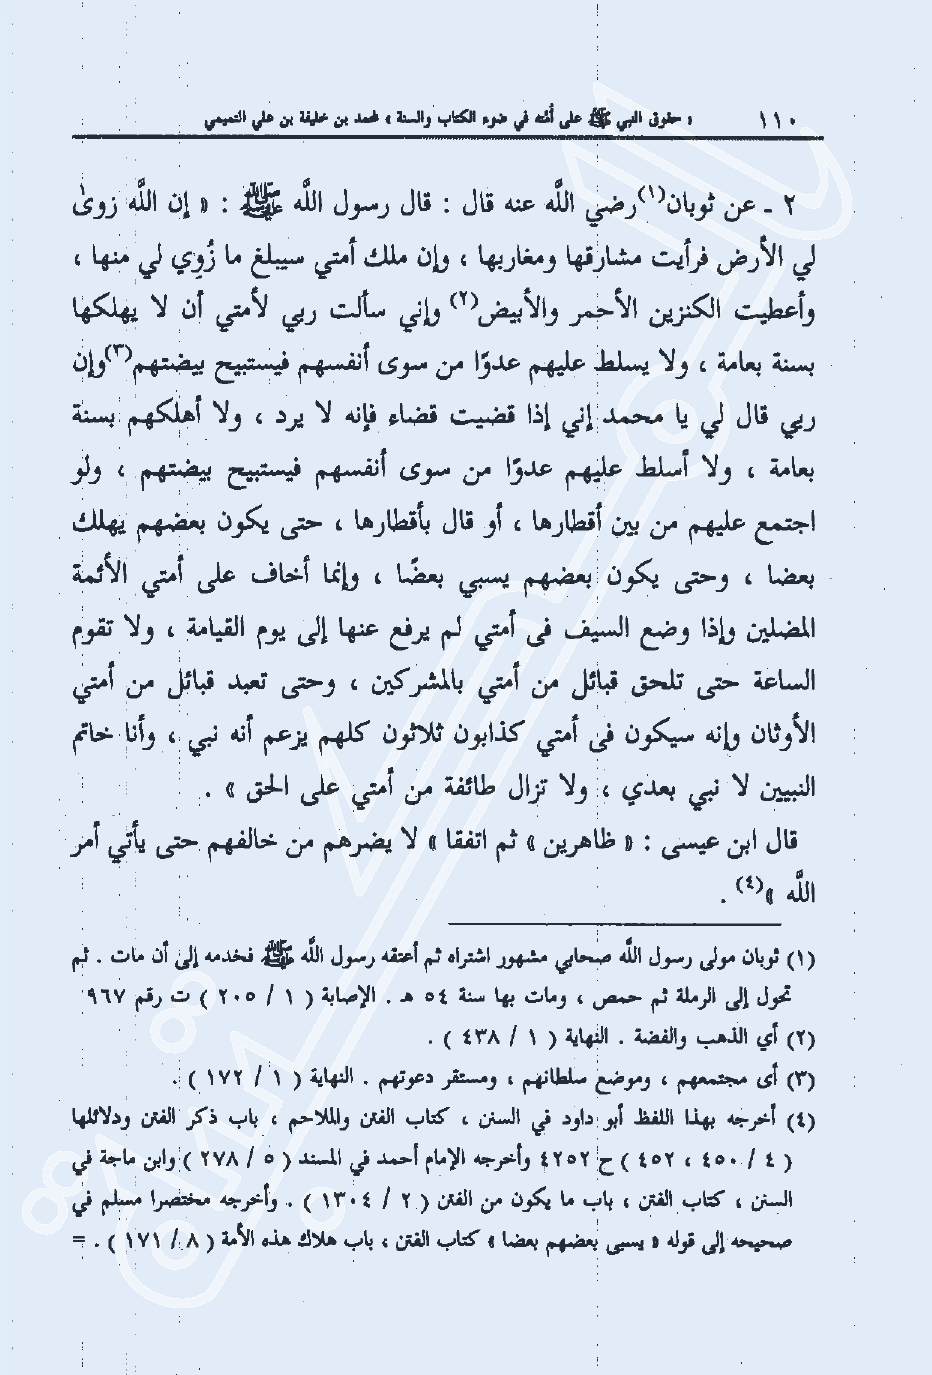 ١١٠ « حقوق النبي ﷺ على أمته في ضوء الكتاب والسنة » محمد بن خليفة بن علي التميمي
٢ ـ عن ثوبان(١) رضي اللَّه عنه قال : قال رسول اللَّه ﷺ : « إن اللَّه زوىٰ
لي الأرض فرأيت مشارقها ومغاربها ، وإن ملك أمتي سيبلغ ما زُوِي لي منها ،
وأعطيت الكنزين الأحمر والأبيض(٢) وإني سألت ربي لأمتي أن لا يهلكها
بسنة بعامة ، ولا يسلط عليهم عدوًا من سوى أنفسهم فيستبيح بيضتهم(٣) وإن
ربي قال لي يا محمد إني إذا قضيت قضاء فإنه لا يرد ، ولا أهلكهم بسنة
بعامة ، ولا أسلط عليهم عدوًا من سوى أنفسهم فيستبيح بيضتهم ، ولو
اجتمع عليهم من بين أقطارها ، أو قال بأقطارها ، حتى يكون بعضهم يهلك
بعضا ، وحتى يكون بعضهم يسبي بعضًا ، وإنما أخاف على أمتي الأئمة
المضلين وإذا وضع السيف فى أمتي لم يرفع عنها إلى يوم القيامة ، ولا تقوم
الساعة حتى تلحق قبائل من أمتي بالمشركين ، وحتى تعبد قبائل من أمتي
الأوثان وإنه سيكون فى أمتي كذابون ثلاثون كلهم يزعم أنه نبي ، وأنا خاتم
النبيين لا نبي بعدي ، ولا تزال طائفة من أمتي على الحق » .
قال ابن عيسى : « ظاهرين » ثم اتفقا « لا يضرهم من خالفهم حتى يأتي أمر
اللَّه »(٤) .
(١) ثوبان مولى رسول اللَّه صحابي مشهور اشتراه ثم أعتقه رسول اللَّه ﷺ فخدمه إلى أن مات . ثم
تحول إلى الرملة ثم حمص ، ومات بها سنة ٥٤ هـ . الإصابة ( ١ / ٢٠٥ ) ت رقم ٩٦٧
(٢) أي الذهب والفضة . النهاية ( ١ / ٤٣٨ ) .
(٣) أى مجتمعهم ، وموضع سلطانهم ، ومستقر دعوتهم . النهاية ( ١ / ١٧٢ ) .
(٤) أخرجه بهذا اللفظ أبو داود في السنن ، كتاب الفتن والملاحم ، باب ذكر الفتن ودلائلها
( ٤ / ٤٥٠ ، ٤٥٢ ) ح ٤٢٥٢ وأخرجه الإمام أحمد في المسند ( ٥ / ٢٧٨ ) وابن ماجة في
السنن ، كتاب الفتن ، باب ما يكون من الفتن ( ٢ / ١٣٠٤ ) . وأخرجه مختصرا مسلم في
صحيحه إلى قوله « يسبى بعضهم بعضا » كتاب الفتن ، باب هلاك هذه الأمة ( ٨ / ١٧١ ) . =